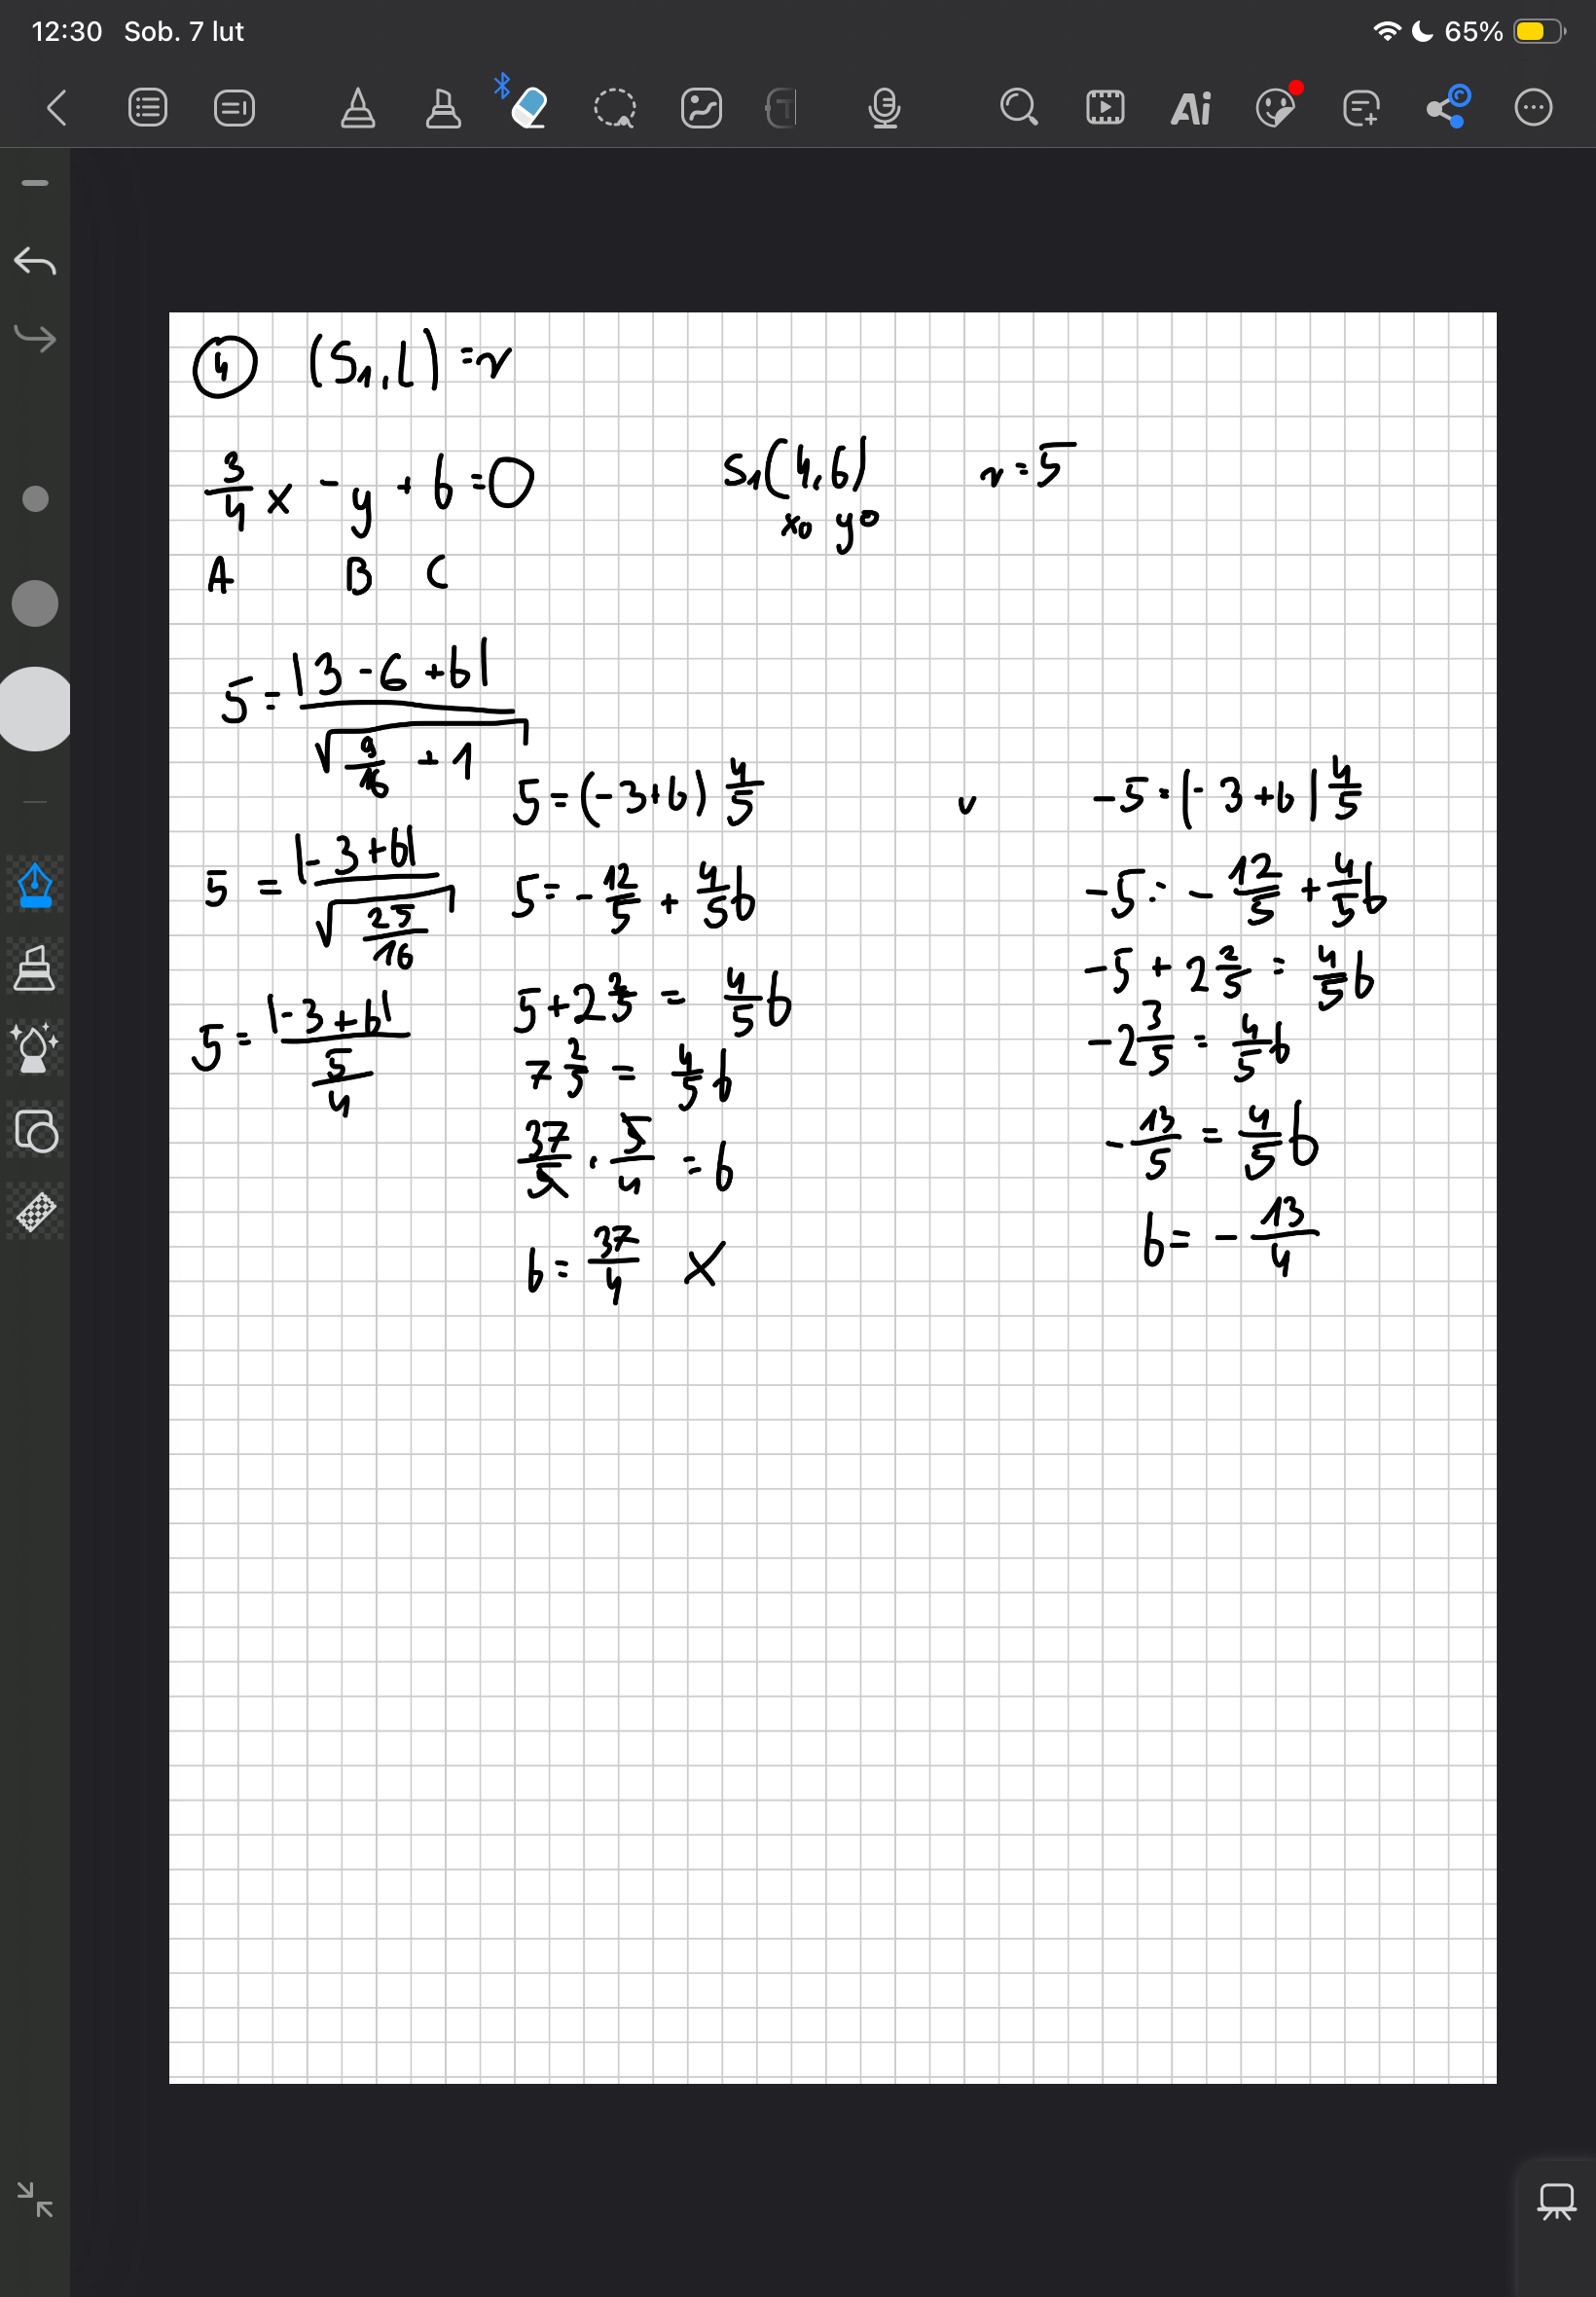 12:30 Sob. 7 lut 65%
Ai
4 (S₁, L) = r
3/4 x - y + b = 0 S₁(4,6) r = 5
x₀ y₀
A B C
5 = |3 - 6 + b| / √(9/16 + 1)
5 = |-3 + b| / √(25/16)
5 = |-3 + b| / (5/4)
5 = (-3 + b) 4/5
5 = - 12/5 + 4/5 b
5 + 2 2/5 = 4/5 b
7 2/5 = 4/5 b
37/5 · 5/4 = b
b = 37/4 X
v
-5 = (-3 + b) 4/5
-5 = - 12/5 + 4/5 b
-5 + 2 2/5 = 4/5 b
-2 3/5 = 4/5 b
- 13/5 = 4/5 b
b = - 13/4